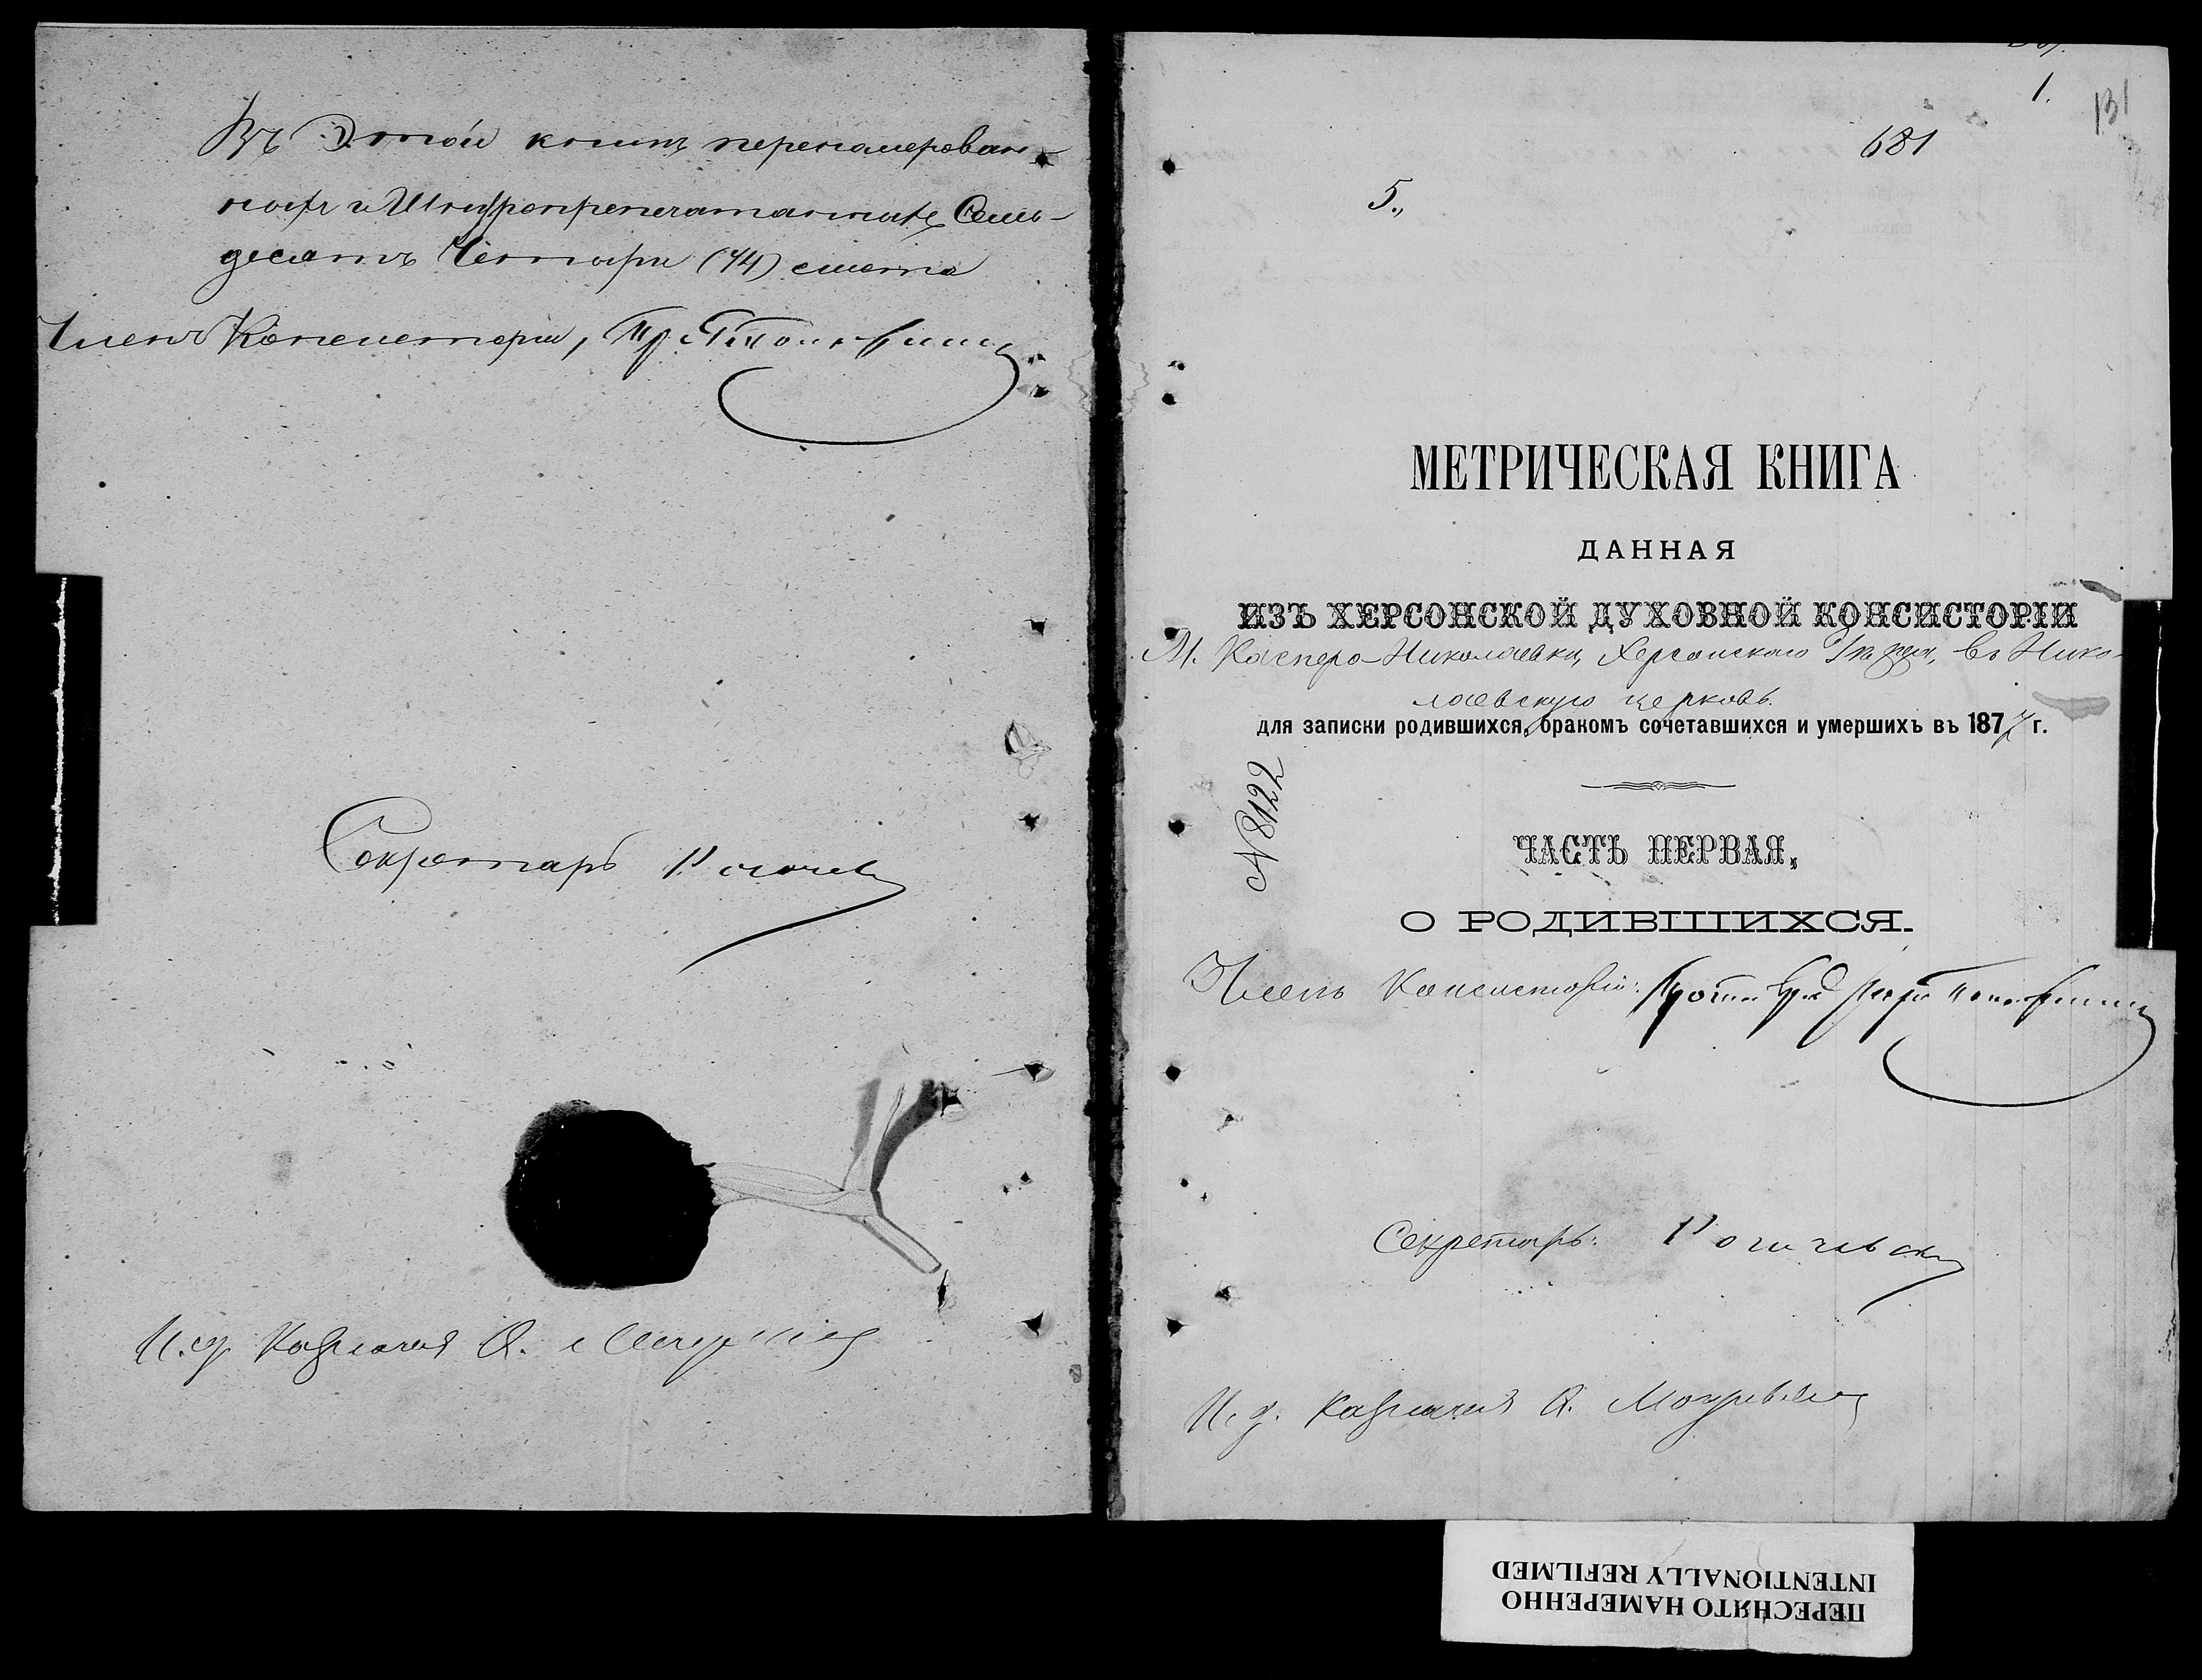 Въ этой книгѣ перенумерован-
ныхъ и шнуропрепечатанныхъ Семь-
десятъ Четыри (74) листа
Членъ Консисторіи,
Секретарь
И. д. Казначея А.
1.
131
681
5.,
МЕТРИЧЕСКАЯ КНИГА
ДАННАЯ
ИЗЪ ХЕРСОНСКОЙ ДУХОВНОЙ КОНСИСТОРІИ
М. Касперо-Николаевки, Херсонскаго Уѣзда, въ Нико-
лаевскую церковь.
для записки родившихся, бракомъ сочетавшихся и умершихъ въ 1877 г.
N 8122
ЧАСТЬ ПЕРВАЯ,
О РОДИВШИХСЯ.
Членъ Консисторіи:
Секретарь:
И. д. Казначея А.
ПЕРЕСНЯТО НАМЕРЕННО
INTENTIONALLY REFILMED